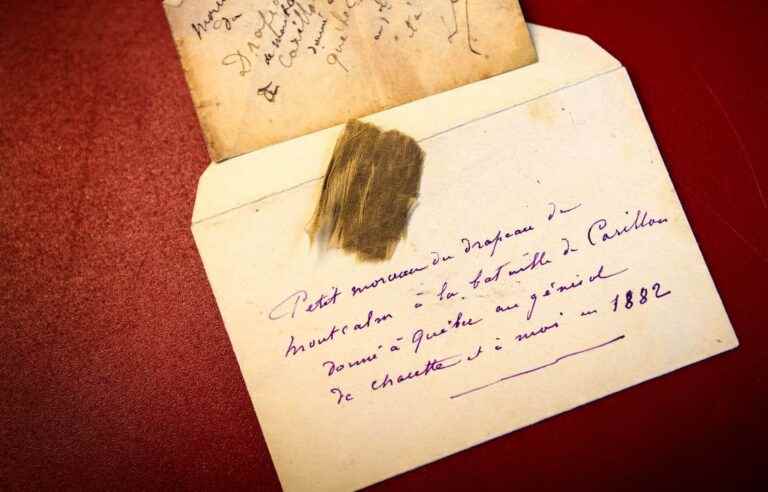 du
Drapeau
de montcalm
Carillon
donné
québec
Petit morceau du drapeau de
montcalm à la bataille de Carillon
donné à Québec au général
de charette et à moi en 1882